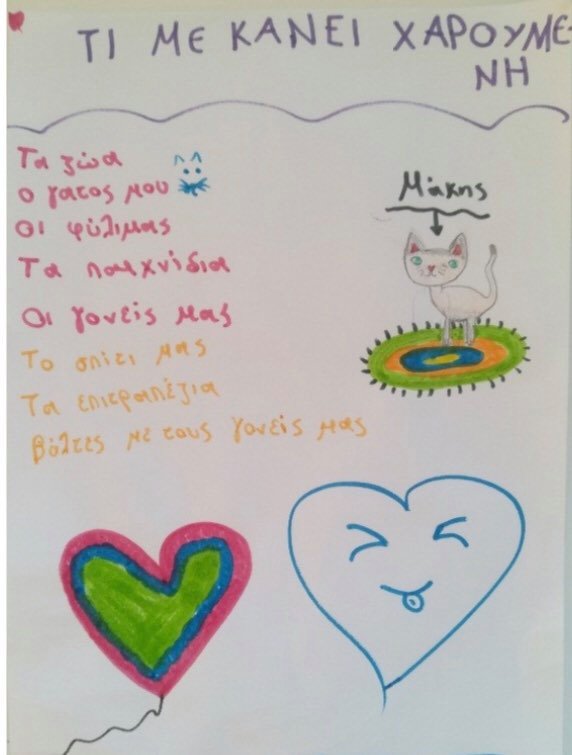 ΤΙ ΜΕ ΚΑΝΕΙ ΧΑΡΟΥΜΕ-
ΝΗ
Τα ζώα
ο γατος μου
Οι φύλιμας
Τα παιχνίδια
Οι γονείς μας
Το σπίτι μας
Τα επιτραπέζια
βόλτες με τους γονείς μας
Μάκης